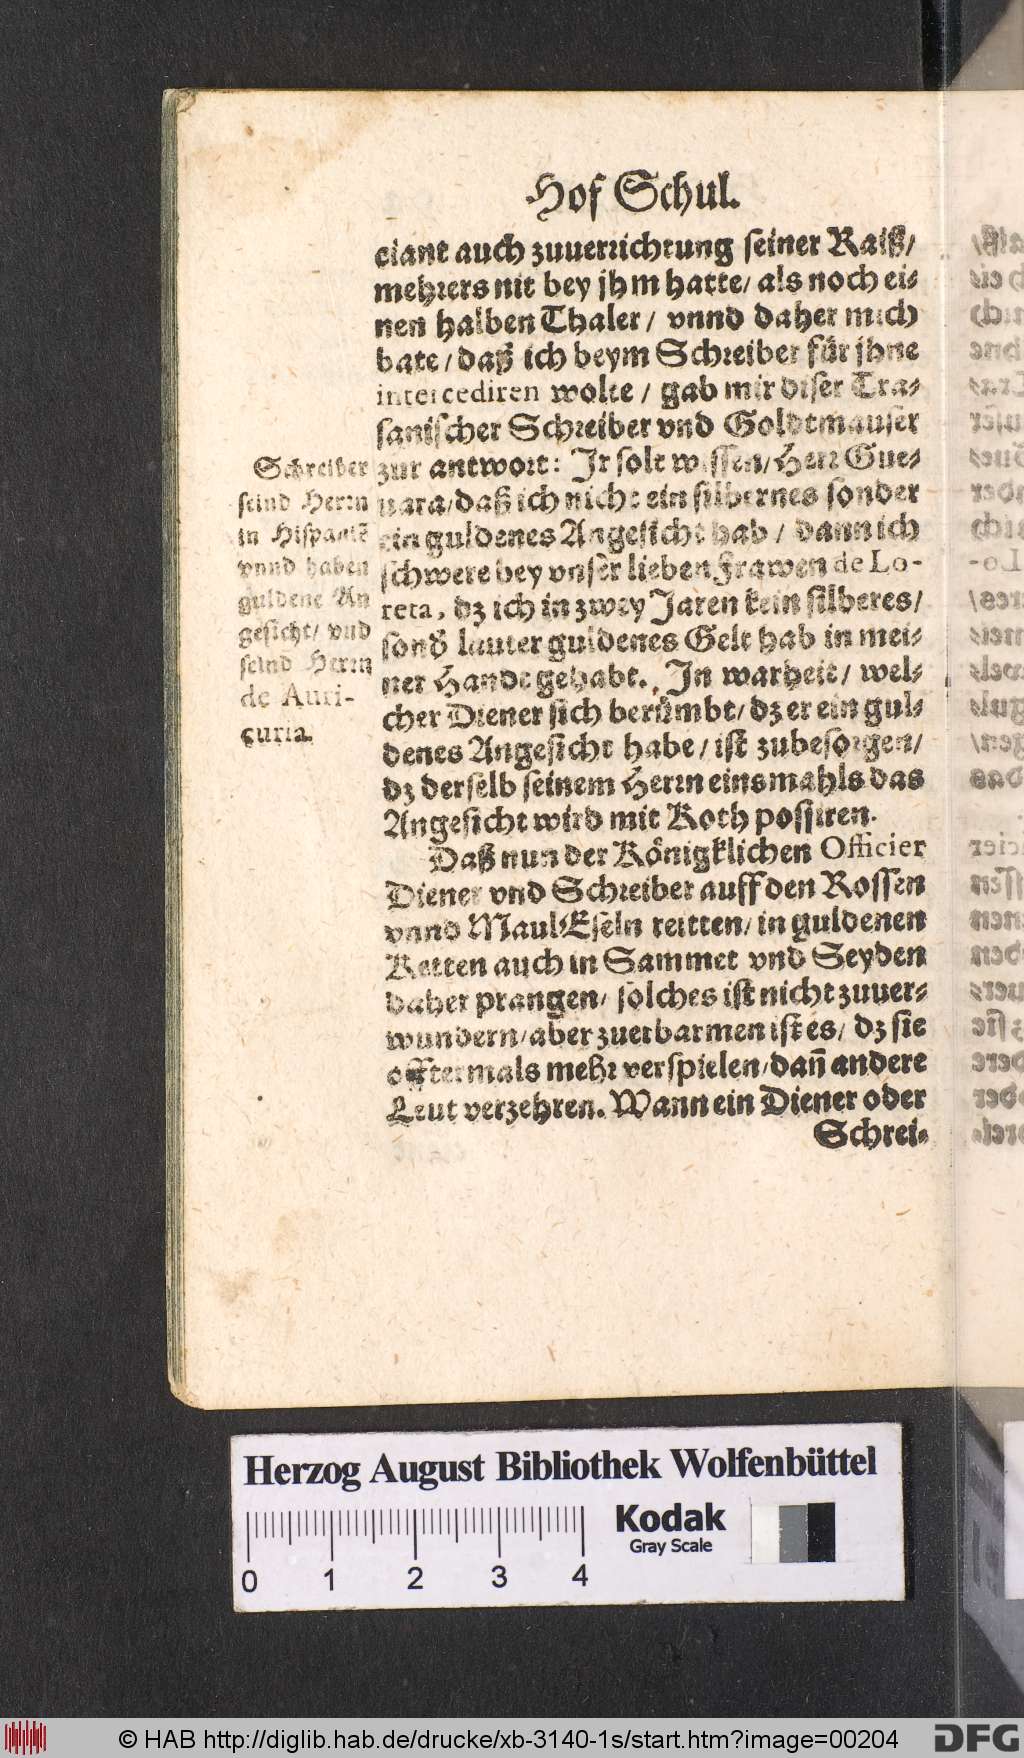 Hof Schul.
ciant auch zuuerrichtung seiner Raiß/
mehrers nit bey jhm hatte/ als noch ei-
nen halben Thaler/ vnnd daher mich
bate/ daß ich beym Schreiber für jhne
intercediren wolte/ gab mir diser Tra-
sanischer Schreiber vnd Goldtmauser
zur antwort: Ir solt wissen/ Herr Gue-
uara/ daß ich nicht ein silbernes sonder
ein guldenes Angesicht hab/ dann ich
schwere bey vnser lieben Frawen de Lo-
reta, dz ich in zwey Jaren kein silberes/
sond̃ lauter guldenes Gelt hab in mei-
ner Handt gehabt. In warheit/ wel-
cher Diener sich berümbt/ dz er ein gul-
denes Angesicht habe/ ist zubesorgen/
dz derselb seinem Herrn einsmahls das
Angesicht wird mit Koth possiren.
Daß nun der Königklichen Officier
Diener vnd Schreiber auff den Rossen
vnnd MaulEseln reitten/ in guldenen
Ketten auch in Sammet vnd Seyden
daher prangen/ solches ist nicht zuuer-
wundern/ aber zuerbarmen ist es/ dz sie
offtermals mehr verspielen/ dañ andere
Leut verzehren. Wann ein Diener oder
Schrei-
Schreiber
seind Herrn
in Hispaniẽ
vnnd haben
guldene An
gesicht/ vnd
seind Herrn
de Auri-
curia.
Herzog August Bibliothek Wolfenbüttel
Kodak
Gray Scale
0 1 2 3 4
© HAB http://diglib.hab.de/drucke/xb-3140-1s/start.htm?image=00204
DFG